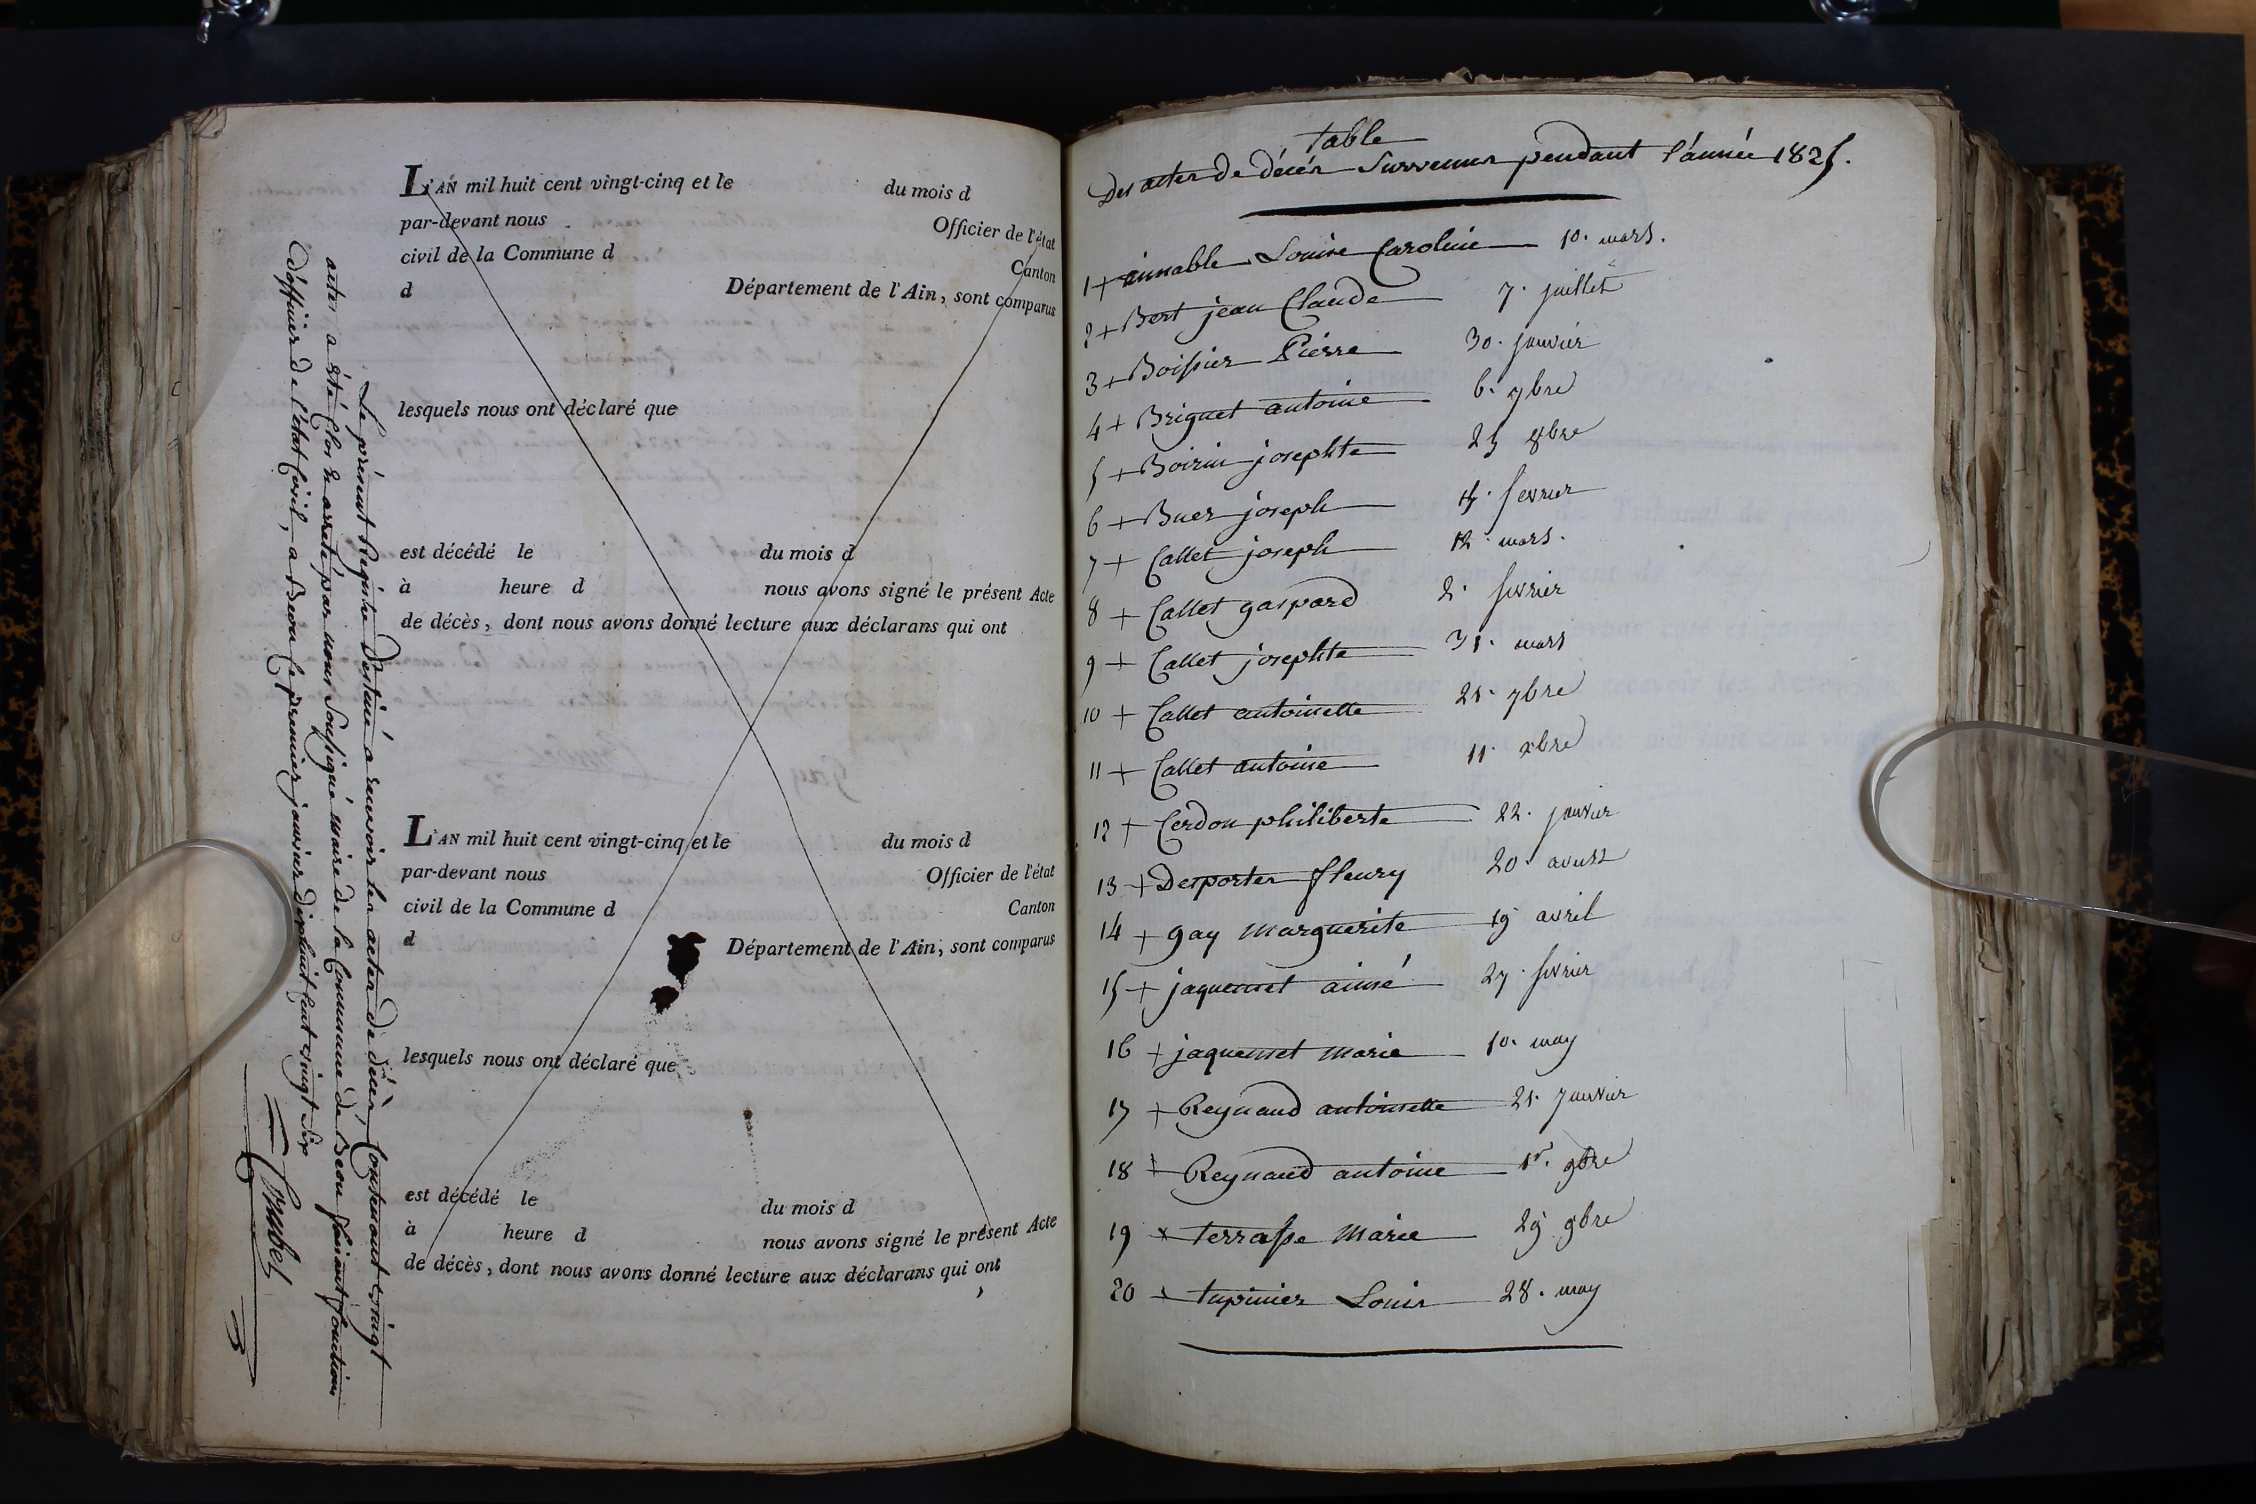 L'AN mil huit cent vingt-cinq et le du mois d
par-devant nous Officier de l'état
civil de la Commune d Canton
d Département de l'Ain, sont comparus
lesquels nous ont déclaré que
est décédé le du mois d
à heure d nous avons signé le présent Acte
de décès, dont nous avons donné lecture aux déclarans qui ont
L'AN mil huit cent vingt-cinq et le du mois d
par-devant nous Officier de l'état
civil de la Commune d Canton
d Département de l'Ain, sont comparus
lesquels nous ont déclaré que
est décédé le du mois d
à heure d nous avons signé le présent Acte
de décès, dont nous avons donné lecture aux déclarans qui ont
Le présent Registre destiné a recevoir les actes de décès, Contenant vingt
actes a été Clos & arreté par nous Soussigné maire de la Commune de Béon faisant fonctions
d'officier de l'état Civil, a Béon le premier janvier dixhuit Cent vingt Six
table
Des actes de décés Survenus pendant l'année 1825.
1 + aimable Louise Caroline 10. mars.
2 + Bert jean Claude 7. juillet
3 + Boissier Pierre 30. janvier
4 + Briguet antoine 6. 7bre
5 + josephte 25 8bre
6 + joseph 15. fevrier
7 + Callet joseph 12. mars.
8 + Callet gaspard 2. fevrier
9 + Callet josephte 31. mars
10 + Callet antoinette 21. 7bre
11 + Callet antoine 11. xbre
12 + Cerdon philiberte 22. janvier
13 + Desportes fleury 20. aoust
14 + gay marguerite 19 avril
15 + jaquemet aimé 27. fevrier
16 + jaquemet marie 10. may
17 + Reynaud antoinette 21. janvier
18 + Reynaud antoine 1r. 9bre
19 x terrasse marie 29 9bre
20 x tupinier Louis 28. may